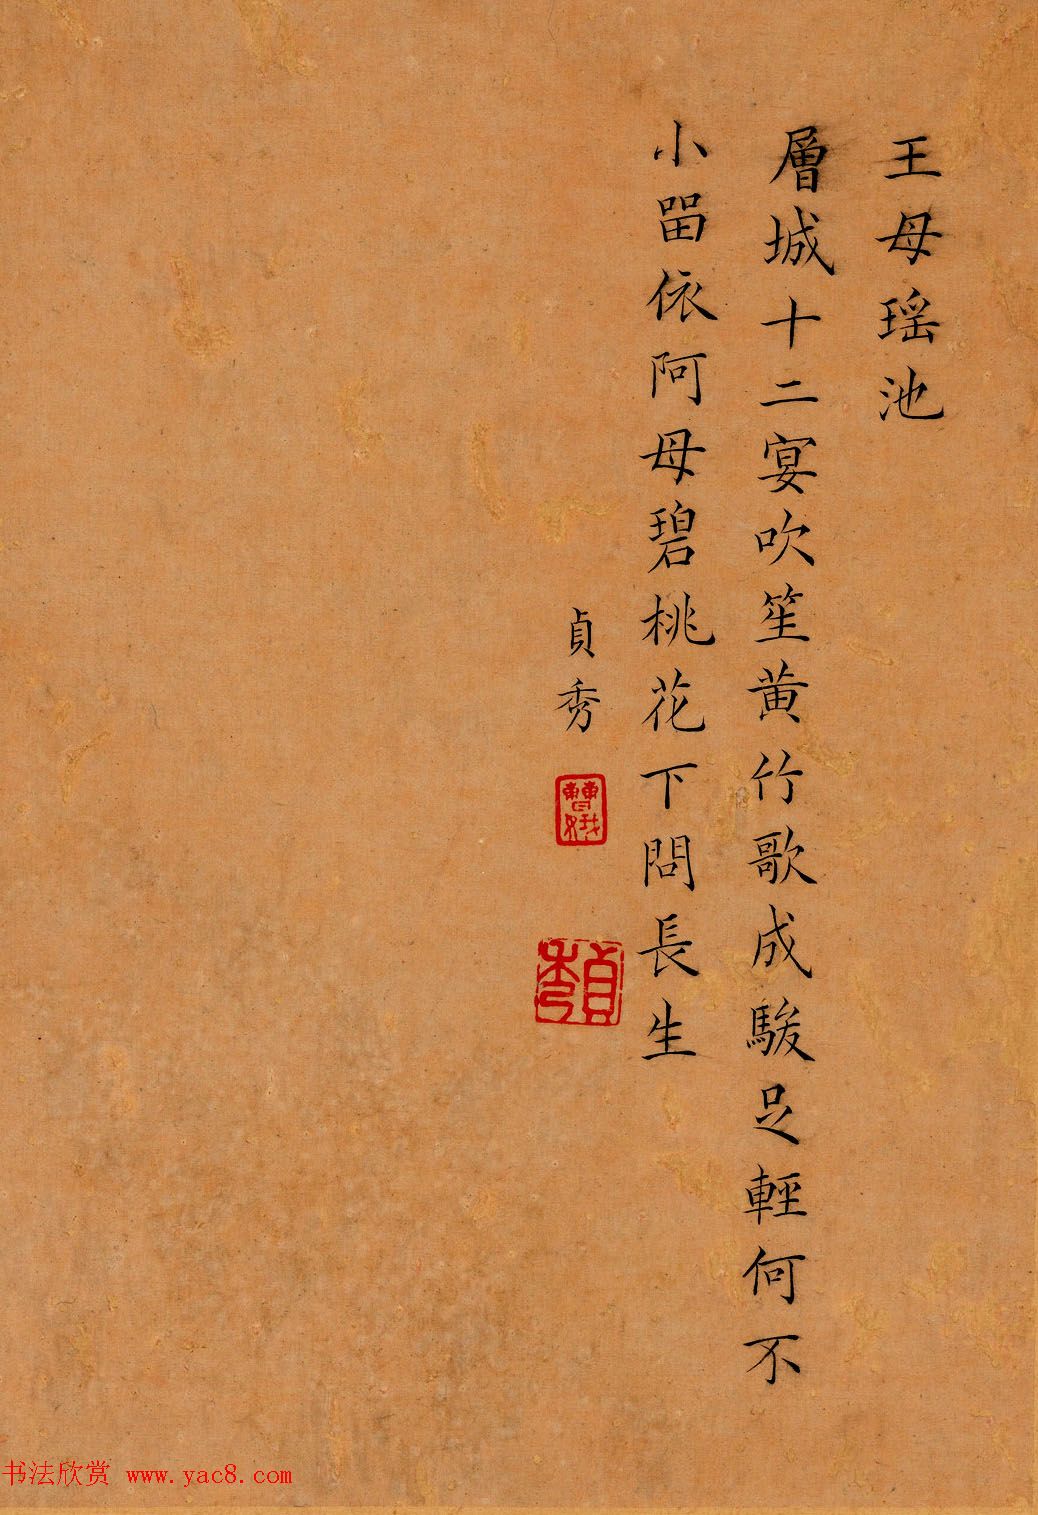 王母瑶池
層城十二宴吹笙黄竹歌成駿足輕何不
小留依阿母碧桃花下問長生
貞秀
曹娥
貞秀
书法欣赏 www.yac8.com